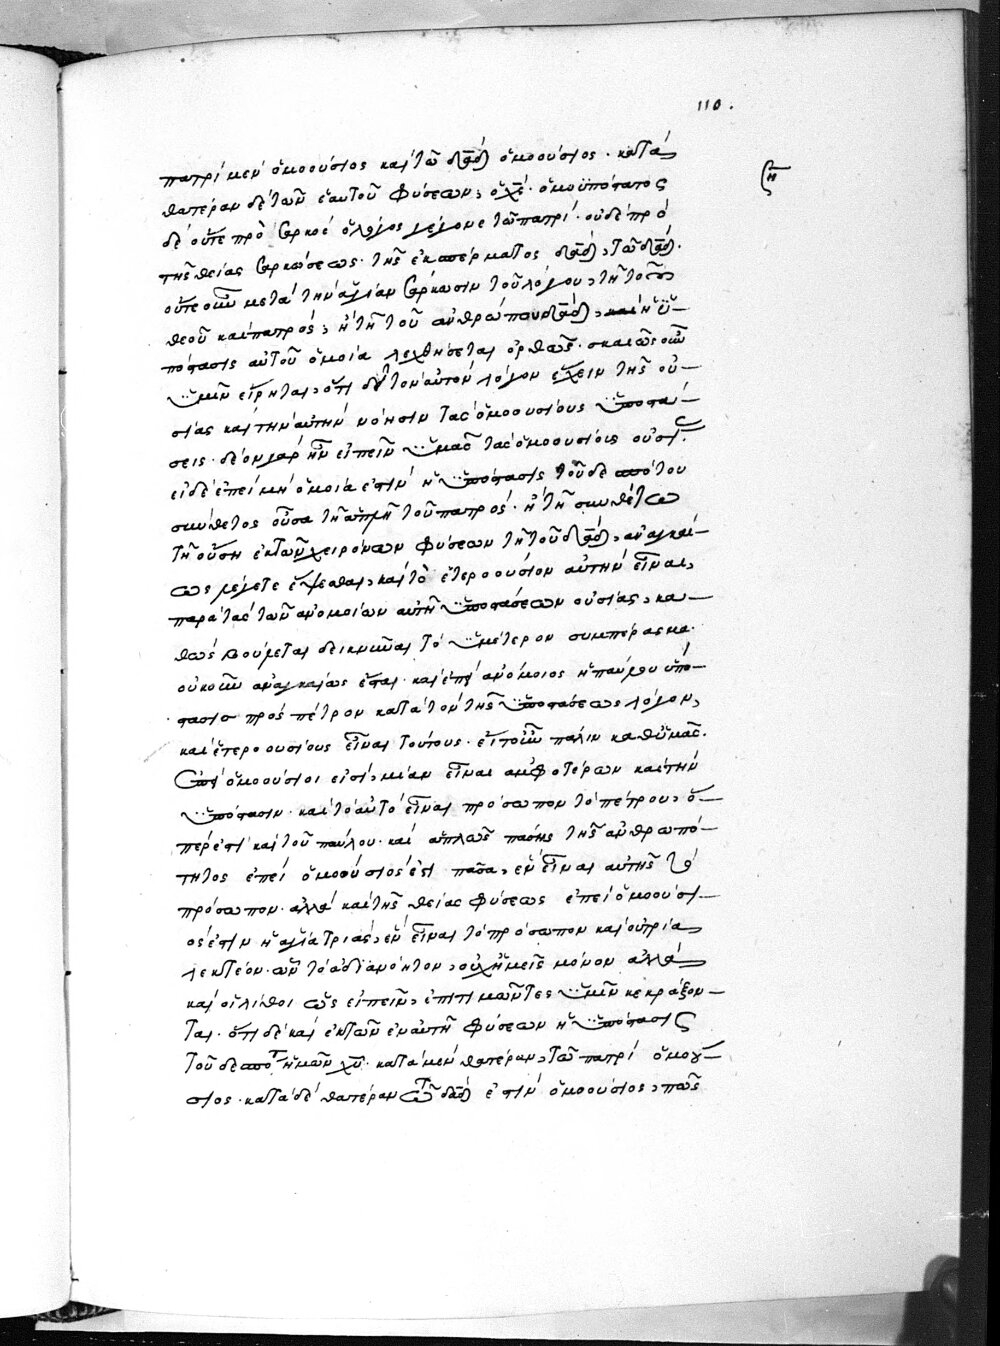 110.
πατρὶ μὲν ὁμοούσιος καὶ τῶ δᾱδ ὁμοούσιος· κατὰ
θατέραν δὲ τῶν ἑαυτοῦ φύσεων, ὁ χς· ὁμοϋπόστατος
δὲ οὔτε πρὸ σαρκὸς ὁ λόγος γέγονε τῶ πατρί· οὐδὲ πρὸ
τῆς θείας σαρκώσεως· τῆς ἐκ σπέρματος δᾱδ, τῶ δᾱδ·
οὔτε οὖν μετὰ τὴν ἁγίαν σάρκωσιν τοῦ λόγου, τῆ τοῦ
θεοῦ καὶ πατρός, ἢ τῆ τοῦ ἀνθρώπου δᾱδ, ἡ ὑ-
πόστασις αὐτοῦ ὁμοία λεχθήσεται ὀρθῶς· σκαιῶς οὖν
ὑμῖν εἴρηται, ὅτι τὸν αὐτὸν λόγον ἔχειν τῆς οὐ-
σίας καὶ τὴν αὐτὴν νόησιν τὰς ὁμοουσίους ὑποστά-
σεις· δέον γὰρ ἦν εἰπεῖν ὑμᾶς τὰς ὁμοουσίους οὐσί
εἰ δὲ ἐπεὶ μὴ ὁμοία ἐστὶν ἡ ὑπόστασις τοῦ δεσπότου
σύνθετος οὖσα τῆ ἁπλῆ τοῦ πατρός· ἢ τῆ συνθέτω
τῆ οὔση ἐκ τῶν χειρόνων φύσεων τῆ τοῦ δᾱδ, ἀναγκαί-
ως λέγετε ἕψεσθαι, καὶ τὸ ἑτεροούσιον αὐτὴν εἶναι,
παρὰ τὰς τῶν ἀνομοίων αὐτῆ ὑποστάσεων οὐσίας, κα-
θὼς βούλεται δεικνύναι τὸ ὑμέτερον συμπέρασμα·
οὐκοῦν ἀναγκαίως ἔσται· καὶ ἐπεὶ ἀνόμοιος ἡ παύλου ὑπό-
στασις πρὸς πέτρον κατὰ τὸν τῆς ὑποστάσεως λόγον,
καὶ ἑτεροουσίους εἶναι τούτους· εἰ τοίνυν πάλιν καθ' ὑμᾶς·
ὁμοούσιοι εἰσὶ, μίαν εἶναι ἀμφοτέρων καὶ τὴν
ὑπόστασιν· καὶ τὸ αὐτὸ εἶναι πρόσωπον τὸ πέτρου, ὅ-
πέρ ἐστι καὶ τοῦ παύλου· καὶ ἁπλῶς πάσης τῆς ἀνθρωπό-
τητος ἐπεὶ ὁμοούσιός ἐστι πᾶσα, ἓν εἶναι αὐτῆς τὸ
πρόσωπον· ἀλλὰ καὶ τῆς θείας φύσεως ἐπεὶ ὁμοούσι-
ός ἐστιν ἡ ἁγία τριάς, ἓν εἶναι τὸ πρόσωπον καὶ οὐ τρία
λεκτέον· ὧν τὸ ἀδιανόητον, οὐχ ἡμεῖς μόνον ἀλλὰ
καὶ οἱ λίθοι ὡς εἰπεῖν, ἐπιτιμῶντες ὑμῖν κεκράξον-
ται· ὅτι δὲ καὶ ἐκ τῶν ἐν αὐτῆ φύσεων ἡ ὑπόστασις
τοῦ δεσπότ ἡμῶν χῦ· κατὰ μὲν θατέραν, τῶ πατρὶ ὁμοού-
σιος· κατὰ δὲ θατέραν τῶ δᾱδ ἐστὶν ὁμοούσιος, πῶς